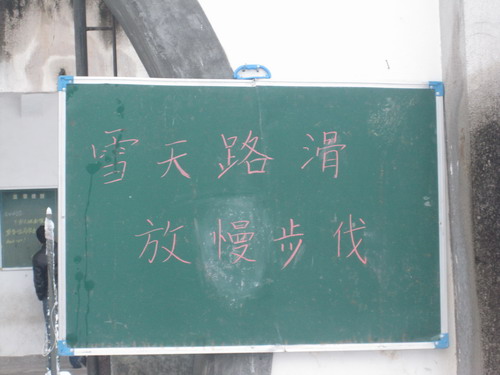 雪天路滑
放慢步伐